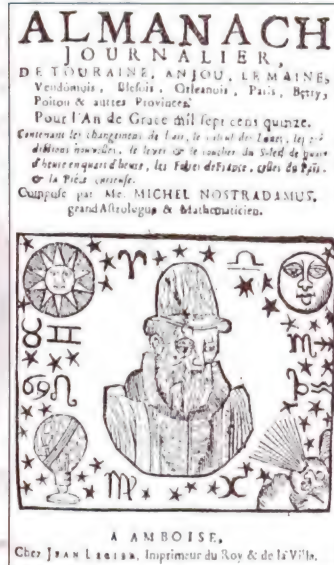 ALMANACH
JOURNALIER,
DE TOURAINE, ANJOU, LE MAINE,
Vendômois, Blesois, Orleanois, Paris, Berry,
Poitou & autres Provinces.
Pour l'An de Grace mil sept cens quinze.
Contenant les changemens de l'air, le calcul des Lunes, les
dictions nouvelles, le lever & le coucher du Soleil de quart
d'heure en quart d'heure, les Foires de France, celles du Païs,
& la Piéce curieuse.
Composé par Me. MICHEL NOSTRADAMUS,
grand Astrologue & Mathematicien.
A AMBOISE,
Chez JEAN LEGIER, Imprimeur du Roy & de la Ville.